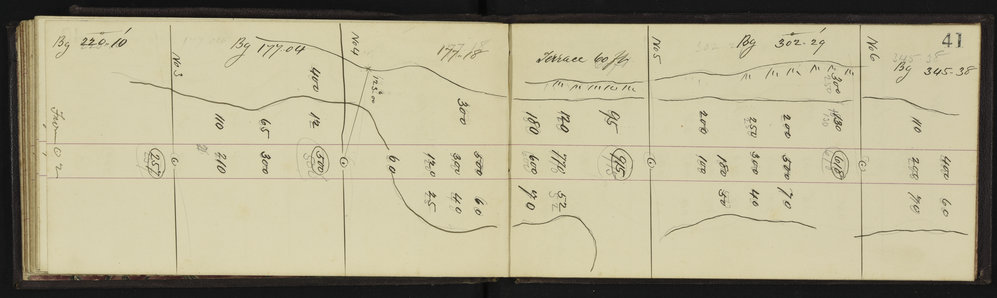 Bg 220°.10'
No 3
Bg 177.04
No 4
177.18
Terrace 60 ft
No 5
Bg 302°.29'
No 6
345.38
Bg 345.38
41
400
125.00
110
65
12
300
180
120
95
200
250
200
300
130
110
257
210
300
500
60
120
300
500
600
170
915
100
180
300
500
618
200
400
25
40
60
70
52
50
40
70
70
60